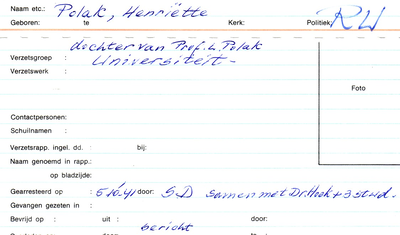 Naam etc.: Polak, Henriëtte
Geboren: te Kerk: Politiek: RW
dochter van Prof. L. Polak
Verzetsgroep : Universiteit -
Verzetswerk :
Foto
Contactpersonen:
Schuilnamen :
Verzetsrapp. ingel. dd. : bij:
Naam genoemd in rapp.:
op bladzijde:
Gearresteerd op : 5/10 '41 door: S.D samen met Dr. Hoek + 3 stud.
Gevangen gezeten in :
Bevrijd op : uit : door:
bericht